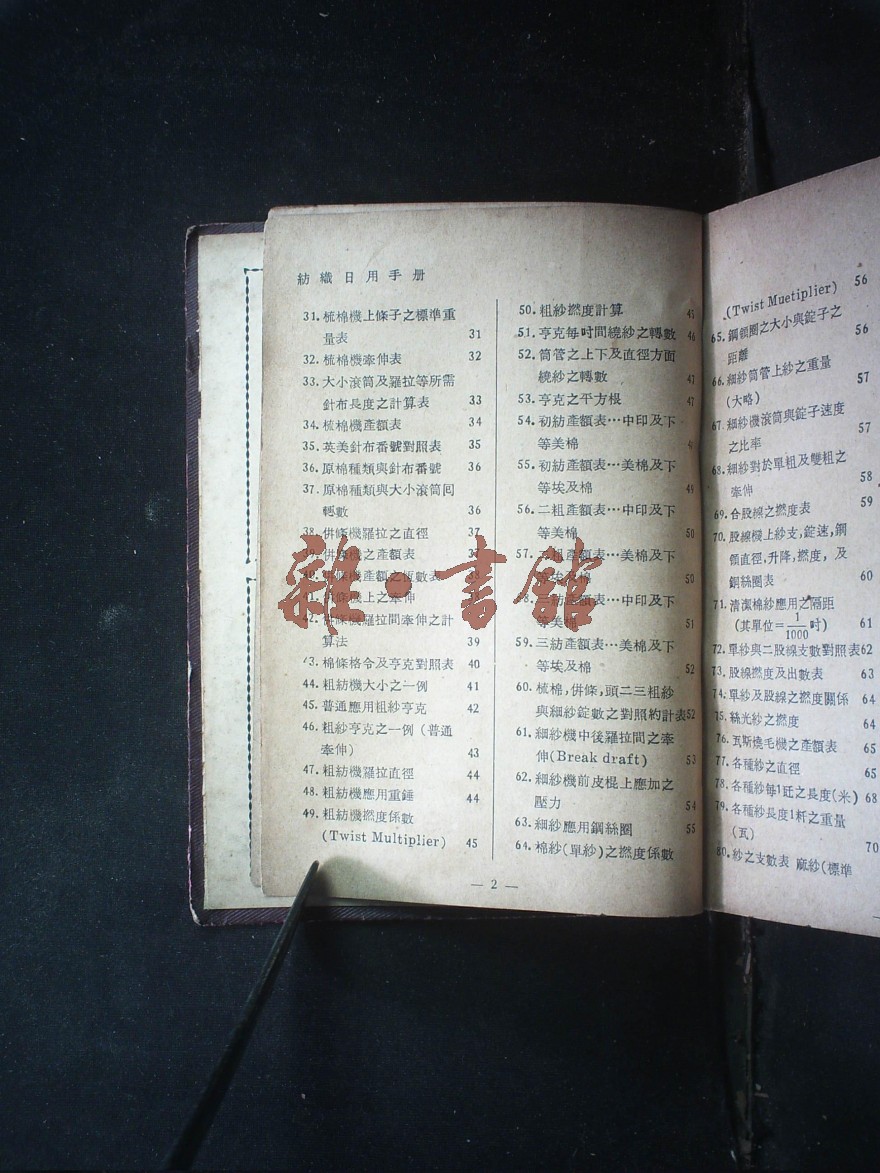 紡織日用手册
31. 梳棉機上條子之標準重
量表 31
32. 梳棉機牽伸表 32
33. 大小滾筒及羅拉等所需
針布長度之計算表 33
34. 梳棉機產額表 34
35. 英美針布番號對照表 35
36. 原棉種類與針布番號 36
37. 原棉種類與大小滾筒囘
轉數 36
38. 併條機羅拉之直徑 37
39. 併條機之產額表 37
40. 併條機產額之恆數表 38
41. 併條機上之牽伸
42. 併條機羅拉間牽伸之計
算法 39
43. 棉條格令及亨克對照表 40
44. 粗紡機大小之一例 41
45. 普通應用粗紗亨克 42
46. 粗紗亨克之一例（普通
牽伸） 43
47. 粗紡機羅拉直徑 44
48. 粗紡機應用重錘 44
49. 粗紡機撚度係數
(Twist Multiplier) 45
50. 粗紗撚度計算
51. 亨克每吋間繞紗之轉數 46
52. 筒管之上下及直徑方面
繞紗之轉數 47
53. 亨克之平方根 47
54. 初紡產額表…中印及下
等美棉
55. 初紡產額表…美棉及下
等埃及棉 49
56. 二粗產額表…中印及下
等美棉 50
57. 二粗產額表…美棉及下
等埃及棉 50
58. 三紡產額表…中印及下
等美棉 51
59. 三紡產額表…美棉及下
等埃及棉 52
60. 梳棉,併條,頭二三粗紗
與細紗錠數之對照約計表 52
61. 細紗機中後羅拉間之牽
伸(Break draft) 53
62. 細紗機前皮棍上應加之
壓力 54
63. 細紗應用鋼絲圈 55
64. 棉紗(單紗)之撚度係數
— 2 —
(Twist Muetiplier) 56
65. 鋼領圈之大小與錠子之
距離 56
66. 細紗筒管上紗之重量
(大略) 57
67. 細紗機滾筒與錠子速度
之比率 57
68. 細紗對於單粗及雙粗之
牽伸 58
69. 合股線之撚度表 59
70. 股線機上紗支,錠速,鋼
領直徑,升降,撚度,及
鋼絲圈表 60
71. 清潔棉紗應用之隔距
(其單位=1/1000吋) 61
72. 單紗與二股線支數對照表 62
73. 股線撚度及出數表 63
74. 單紗及股線之撚度關係 64
75. 絲光紗之撚度 64
76. 瓦斯燒毛機之產額表 65
77. 各種紗之直徑 65
78. 各種紗每1瓩之長度(米) 68
79. 各種紗長度1粁之重量
(瓦) 70
80. 紗之支數表 麻紗(標準
雜·書館